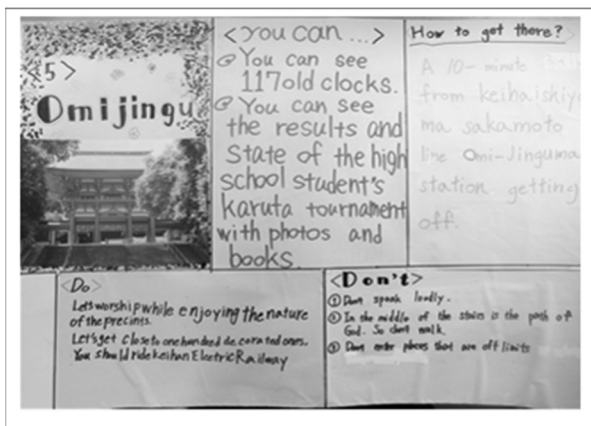 <5>
Omijingu
<you can...>
@ You can see
117 old clocks.
@ You can see
the results and
State of the high
school student's
karuta tournament
with photos and
books.
How to get there?
A 10- minute
from keihaishiy
ma sakamoto
line Omi-Jinguma
station getting
off.
<Do>
Let's worship while enjoying the nature
of the precints.
Let's get close to one hundred de corated ones.
You should ride keihan Electric Railway
<Don't>
① Don't speak loudly.
② In the middle of the stairs is the path of
God. So don't walk.
③ Don't enter places that are off limits